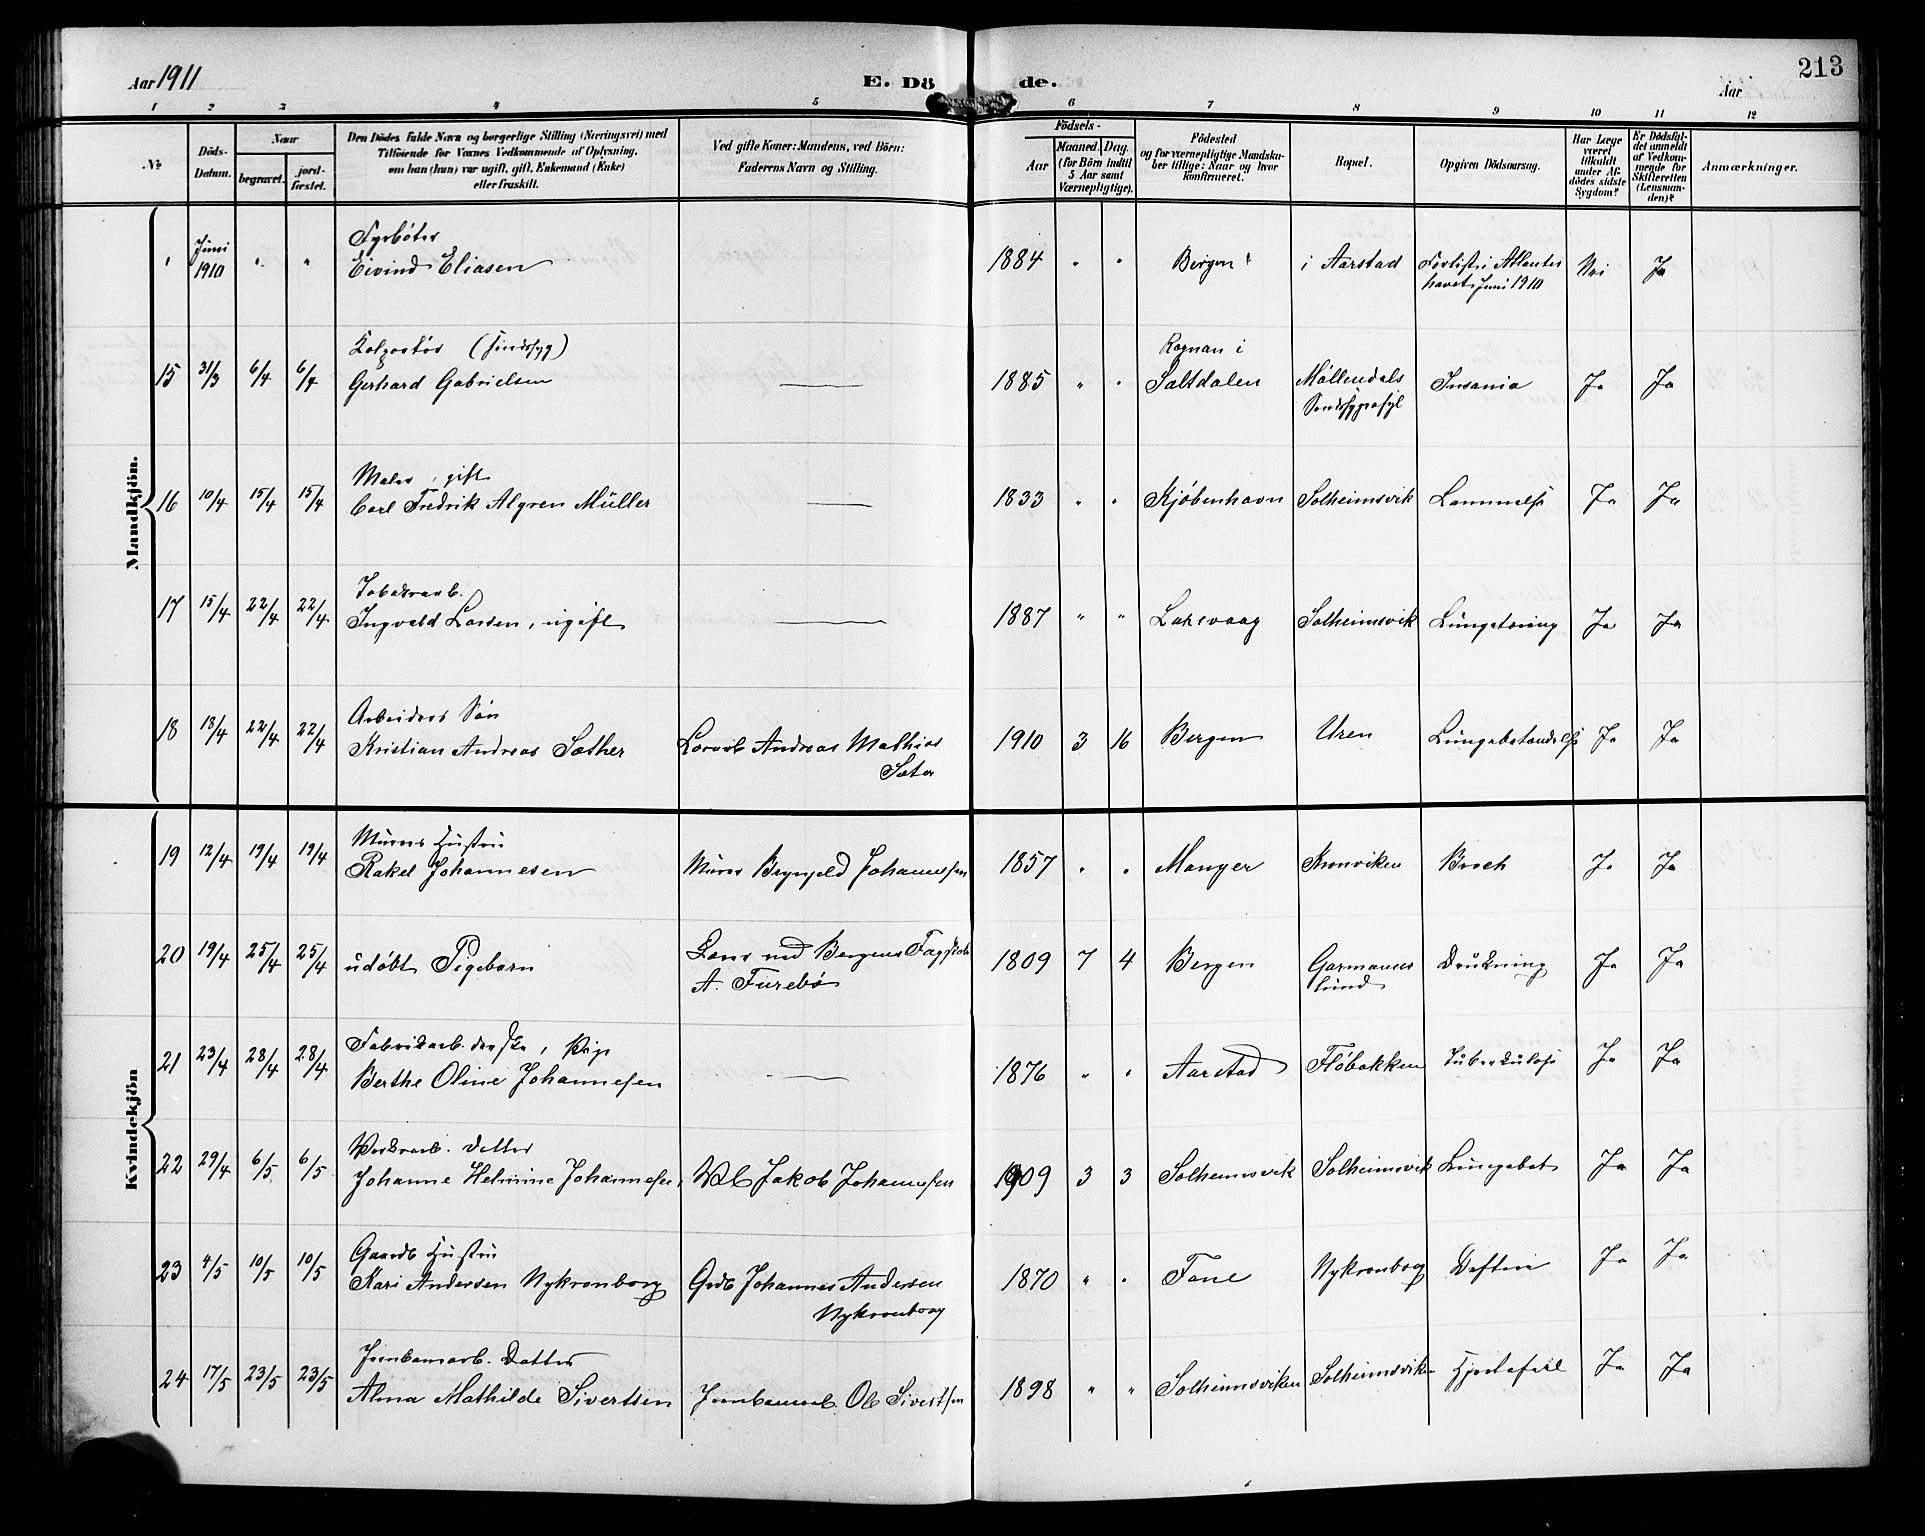 Aar 1911
E. Dö de.
Aar
213
1 2 3 4 5 6 7 8 9 10 11 12
No
Döds-Datum.
Naar
begravet.
jord-fæstet.
Den Dödes fulde Navn og borgerlige Stilling (Næringsvei) med
Tilföiende for Voxnes Vedkommende af Oplysning,
om han (hun) var ugift, gift, Enkemand (Enke)
eller fraskilt.
Ved gifte Koner: Mandens, ved Börn:
Faderens Navn og Stilling.
Födsels-
Aar
Maaned. Dag.
(for Börn indtil
5 Aar samt
Værnepligtige).
Födested
og for værnepligtige Mandska-
ber tillige: Naar og hvor
konfirmeret.
Bopæl.
Opgiven Dödsaarsag.
Har Læge
været
tilkaldt
under Af-
dödes sidste
Sygdom?
Er Dödsfal-
det anmeldt
af Vedkom-
mende for
Skifteretten
(Lensman-
den)?
Anmærkninger.
Mandkjön.
Fyrbøter
" Juni 1910 " " Eivind Eliasen 1884 " " Bergen i Aarstad Forlist i Atlanter Nei Ja
havet Juni 1910
Kolportør (sindssyg) Rognan i
15 31/3 6/4 6/4 Gerhard Gabrielsen — 1885 " " Saltdalen Møllendals Insania Ja Ja
Maler, gift
16 10/4 15/4 15/4 Carl Fredrik Algren Müller — 1833 " " Kjøbenhavn Solheimsvik Lammelse Ja Ja
Tobaksarb.
17 15/4 22/4 22/4 Ingvald Larsen, ugift — 1887 " " Laksevaag Solheimsvik Lungetæring Ja Ja
Arbeiders Søn
18 18/4 22/4 22/4 Kristian Andreas Sæther Andreas Mathias 1910 3 16 Bergen Uren Lungebetændelse Ja Ja
Sæter
Kvindekjön
Murers Hustru
19 12/4 19/4 19/4 Rakel Johannesen Murer Brynjeld Johannessen 1857 " " Manger Kronviken Broch Ja Ja
20 19/4 25/4 25/4 udøbt Pigebarn ved Bergens 1809 7 4 Bergen Garmanns Drukning Ja Ja
A. Furebø lund
Fabrikarb.derske, Pige
21 23/4 28/4 28/4 Berthe Oline Johannesen — 1876 " " Aarstad Fløbakken Tuberkulose Ja Ja
Værksarb. Datter
22 29/4 6/5 6/5 Johanne Helmine Johannesen, Jakob Johannessen 1909 3 3 Solheimsvik Solheimsvik Lungebet Ja Ja
Gaardb Hustru
23 4/5 10/5 10/5 Kari Andersen Nykronborg Grdb Johannes Andersen 1870 " " Fane Nykronborg Ja Ja
Nykronborg
Jernbanearb. Datter
24 17/5 23/5 23/5 Alma Mathilde Sivertsen Jernbanearb. Ole Sivertsen 1898 " " Solheimsviken Solheimsviken Hjertefeil Ja Ja